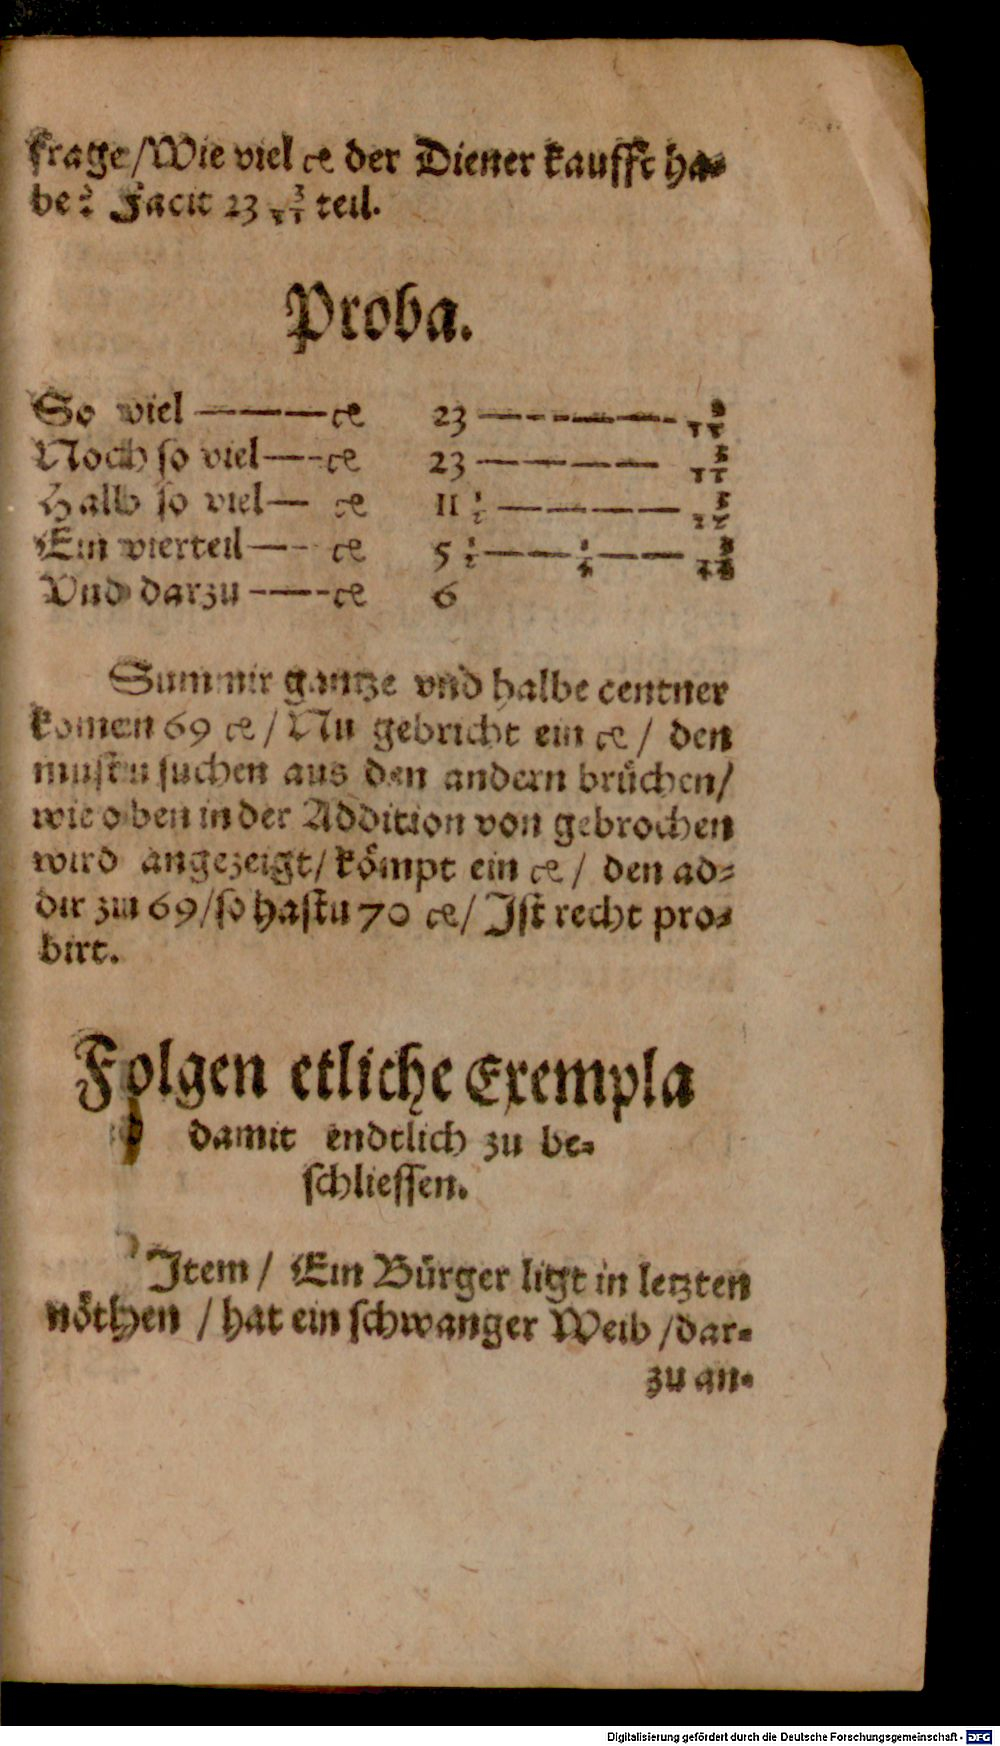 frage/Wie viel ce der Diener kaufft ha-
be? Facit 23 3/11 teil.
Proba.
So viel ———ce 23 ————— 3/11
Noch so viel——ce 23 ———— 3/11
Halb so viel— ce 11 1/2 ———— 3/22
Ein vierteil—— ce 5 1/2 —— 1/4 —— 3/44
Vnd darzu ———ce 6
Summir gantze vnd halbe centner
komen 69 ce / Nu gebricht ein ce / den
mustu suchen aus den andern brüchen/
wie oben in der Addition von gebrochen
wird angezeigt/ kömpt ein ce / den ad-
dir zu 69/so hastu 70 ce/ Jst recht pro-
birt.
Folgen etliche Exempla
damit endtlich zu be-
schliessen.
Jtem / Ein Bürger ligt in letzten
nöthen / hat ein schwanger Weib /dar-
zu an-
Digitalisierung gefördert durch die Deutsche Forschungsgemeinschaft - DFG